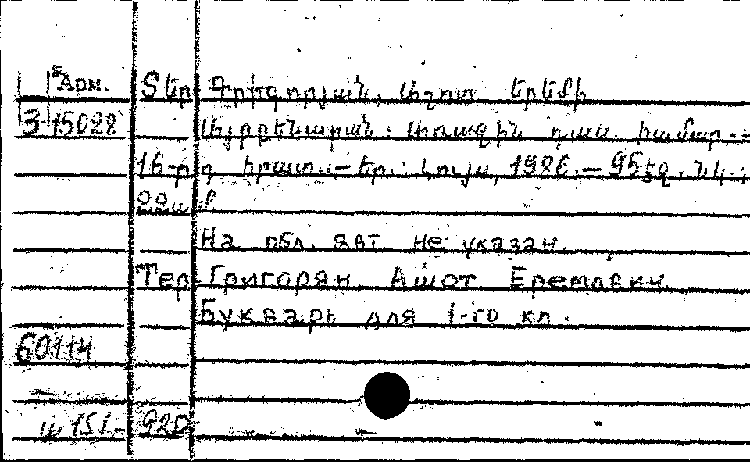 Арм. Տեր-Գրիգորյան, Աշոտ Երեմի
3-15028 Այբբենարան: Առաջին դաս. համար.-
16-րդ հրատ.-Եր.: Լույս, 1986.-95 էջ. նկ.;
22սմ.
На обл. авт. не указан.
Тер-Григорян, Ашот Еремеевич.
Букварь для 1-го кл.
60114